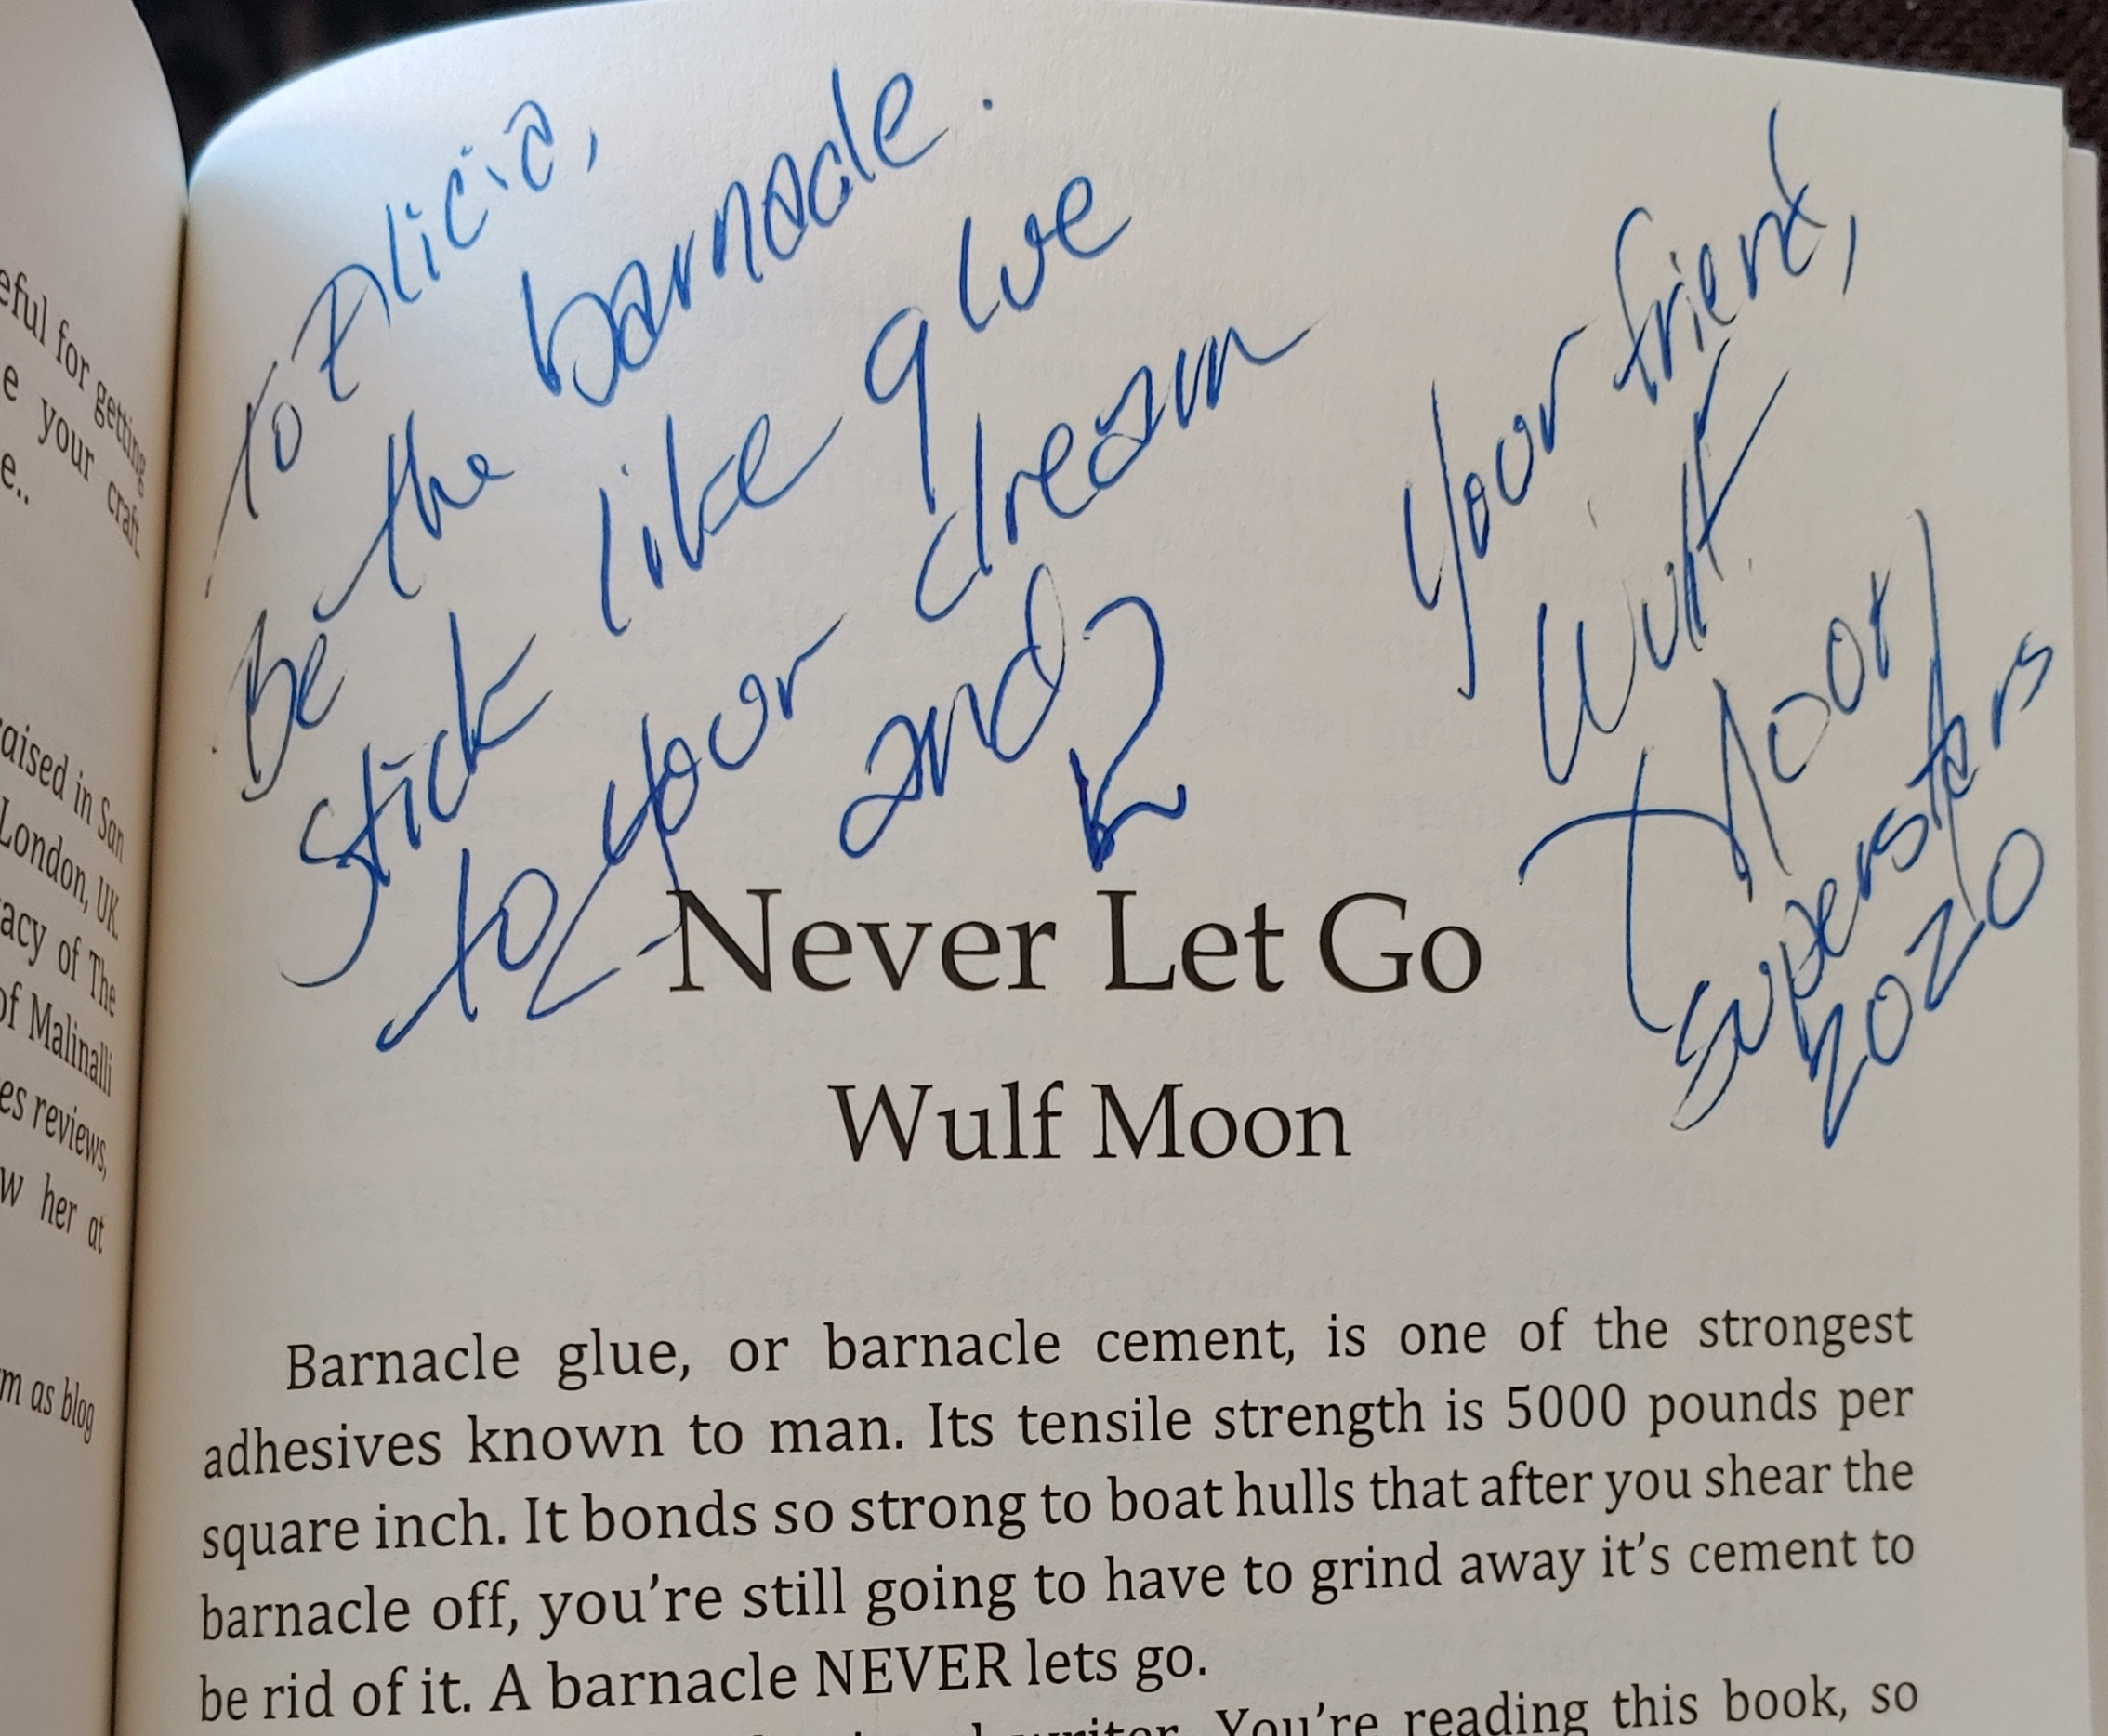 eful for getting
e your craft
e..
raised in San
London, UK.
acy of The
of Malinalli
es reviews,
w her at
m as blog
To Alicia,
Be the barnacle.
Stick like glue
to your dream
and
your friend,
Wulf
Moon
Superstars
2020
Never Let Go
Wulf Moon
Barnacle glue, or barnacle cement, is one of the strongest
adhesives known to man. Its tensile strength is 5000 pounds per
square inch. It bonds so strong to boat hulls that after you shear the
barnacle off, you're still going to have to grind away it's cement to
be rid of it. A barnacle NEVER lets go.
writer. You're reading this book, so